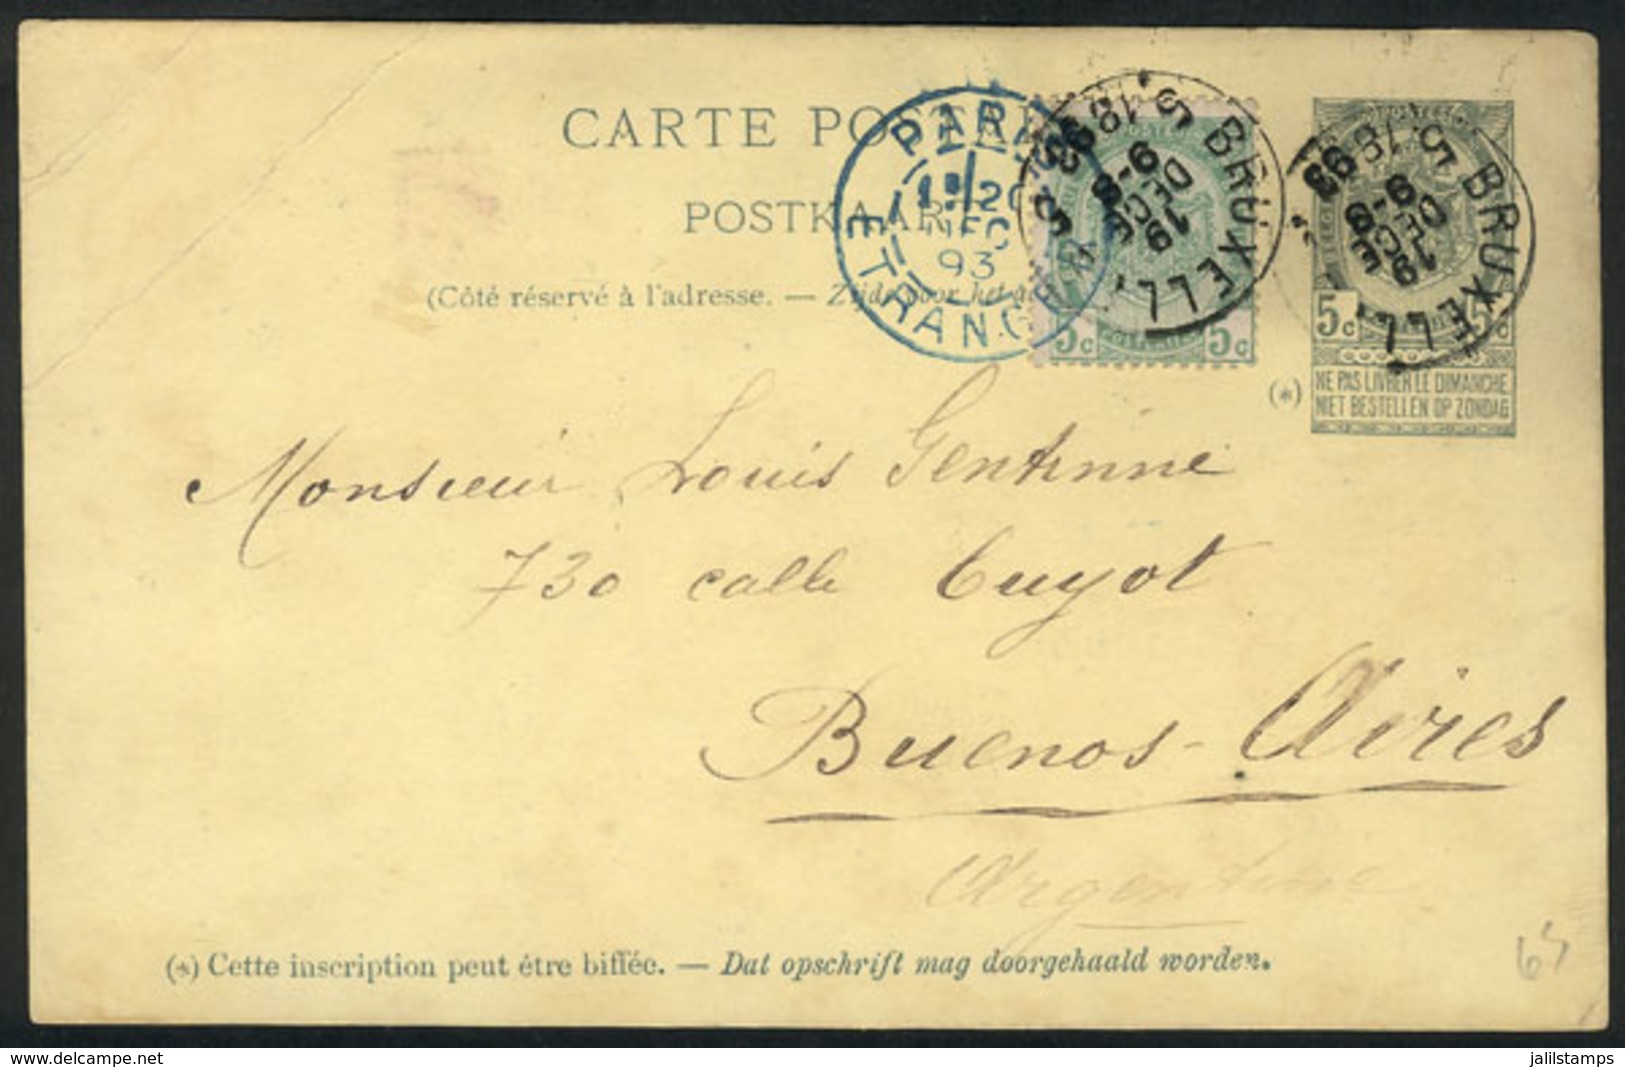 CARTE POSTALE
POSTKAART
(Côté réservé à l'adresse. — Zijde voor het
PARIS
ETRANGER
20
DEC
93
BRUXELLES 5
9-S
19
DECE
1893
5c 5c
BRUXELLES 5
9-S
19
DECE
1893
5c 5c
(*)
NE PAS LIVRER LE DIMANCHE
NIET BESTELLEN OP ZONDAG
Monsieur Louis
730 calle Cuyot
Buenos-Aires
Argentine
(*) Cette inscription peut être biffée. — Dat opschrift mag doorgehaald worden.
https://www.delcampe.net
jalilstamps